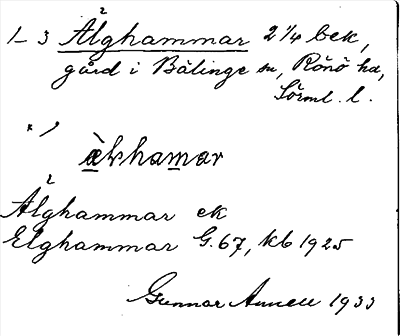 1-3 Älghammar 2 1/4 bek,
gård i Bälinge sn, Rönö hd,
Sörml. l.
Älghammar ek
Elghammar G.67, kb 1925
Gunnar 1933